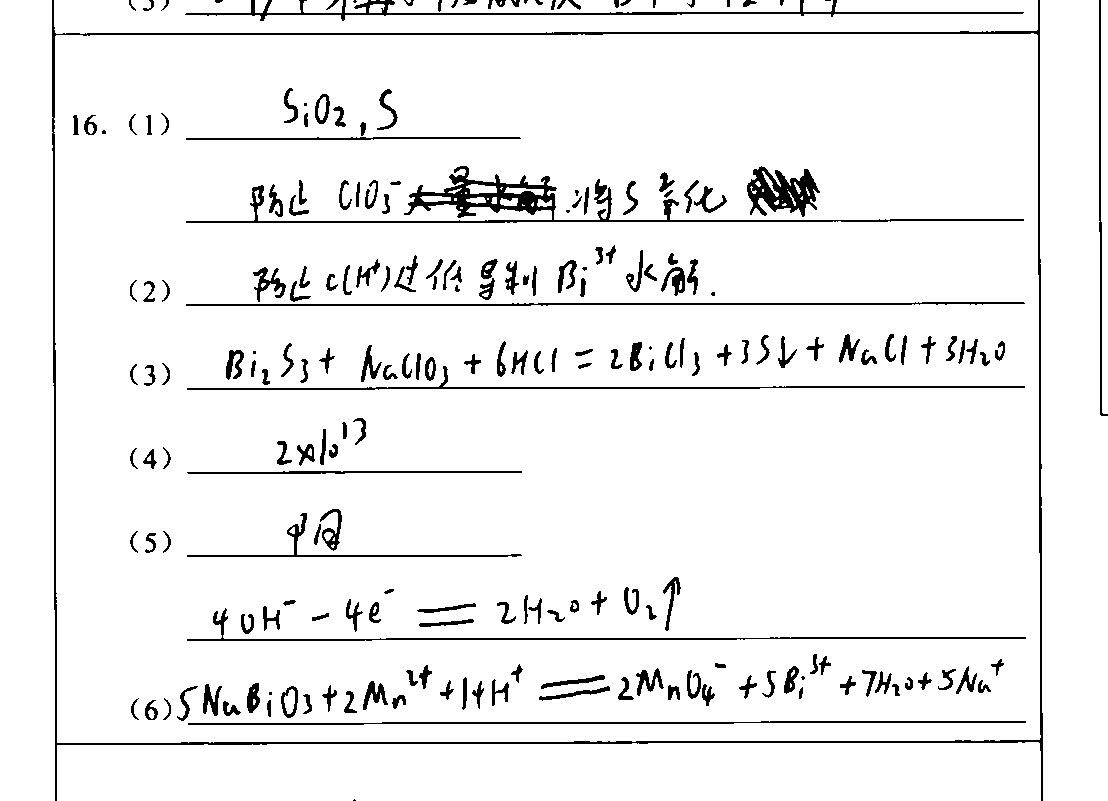 16. (1) SiO2, S
防止 ClO3⁻ 将S氧化
(2) 防止c(H⁺)过低导制Bi³⁺水解.
(3) Bi2S3 + NaClO3 + 6HCl = 2BiCl3 + 3S↓ + NaCl + 3H2O
(4) 2×10¹³
(5)
4OH⁻ - 4e⁻ = 2H2O + O2↑
(6) 5NaBiO3 + 2Mn²⁺ + 14H⁺ = 2MnO4⁻ + 5Bi³⁺ + 7H2O + 5Na⁺